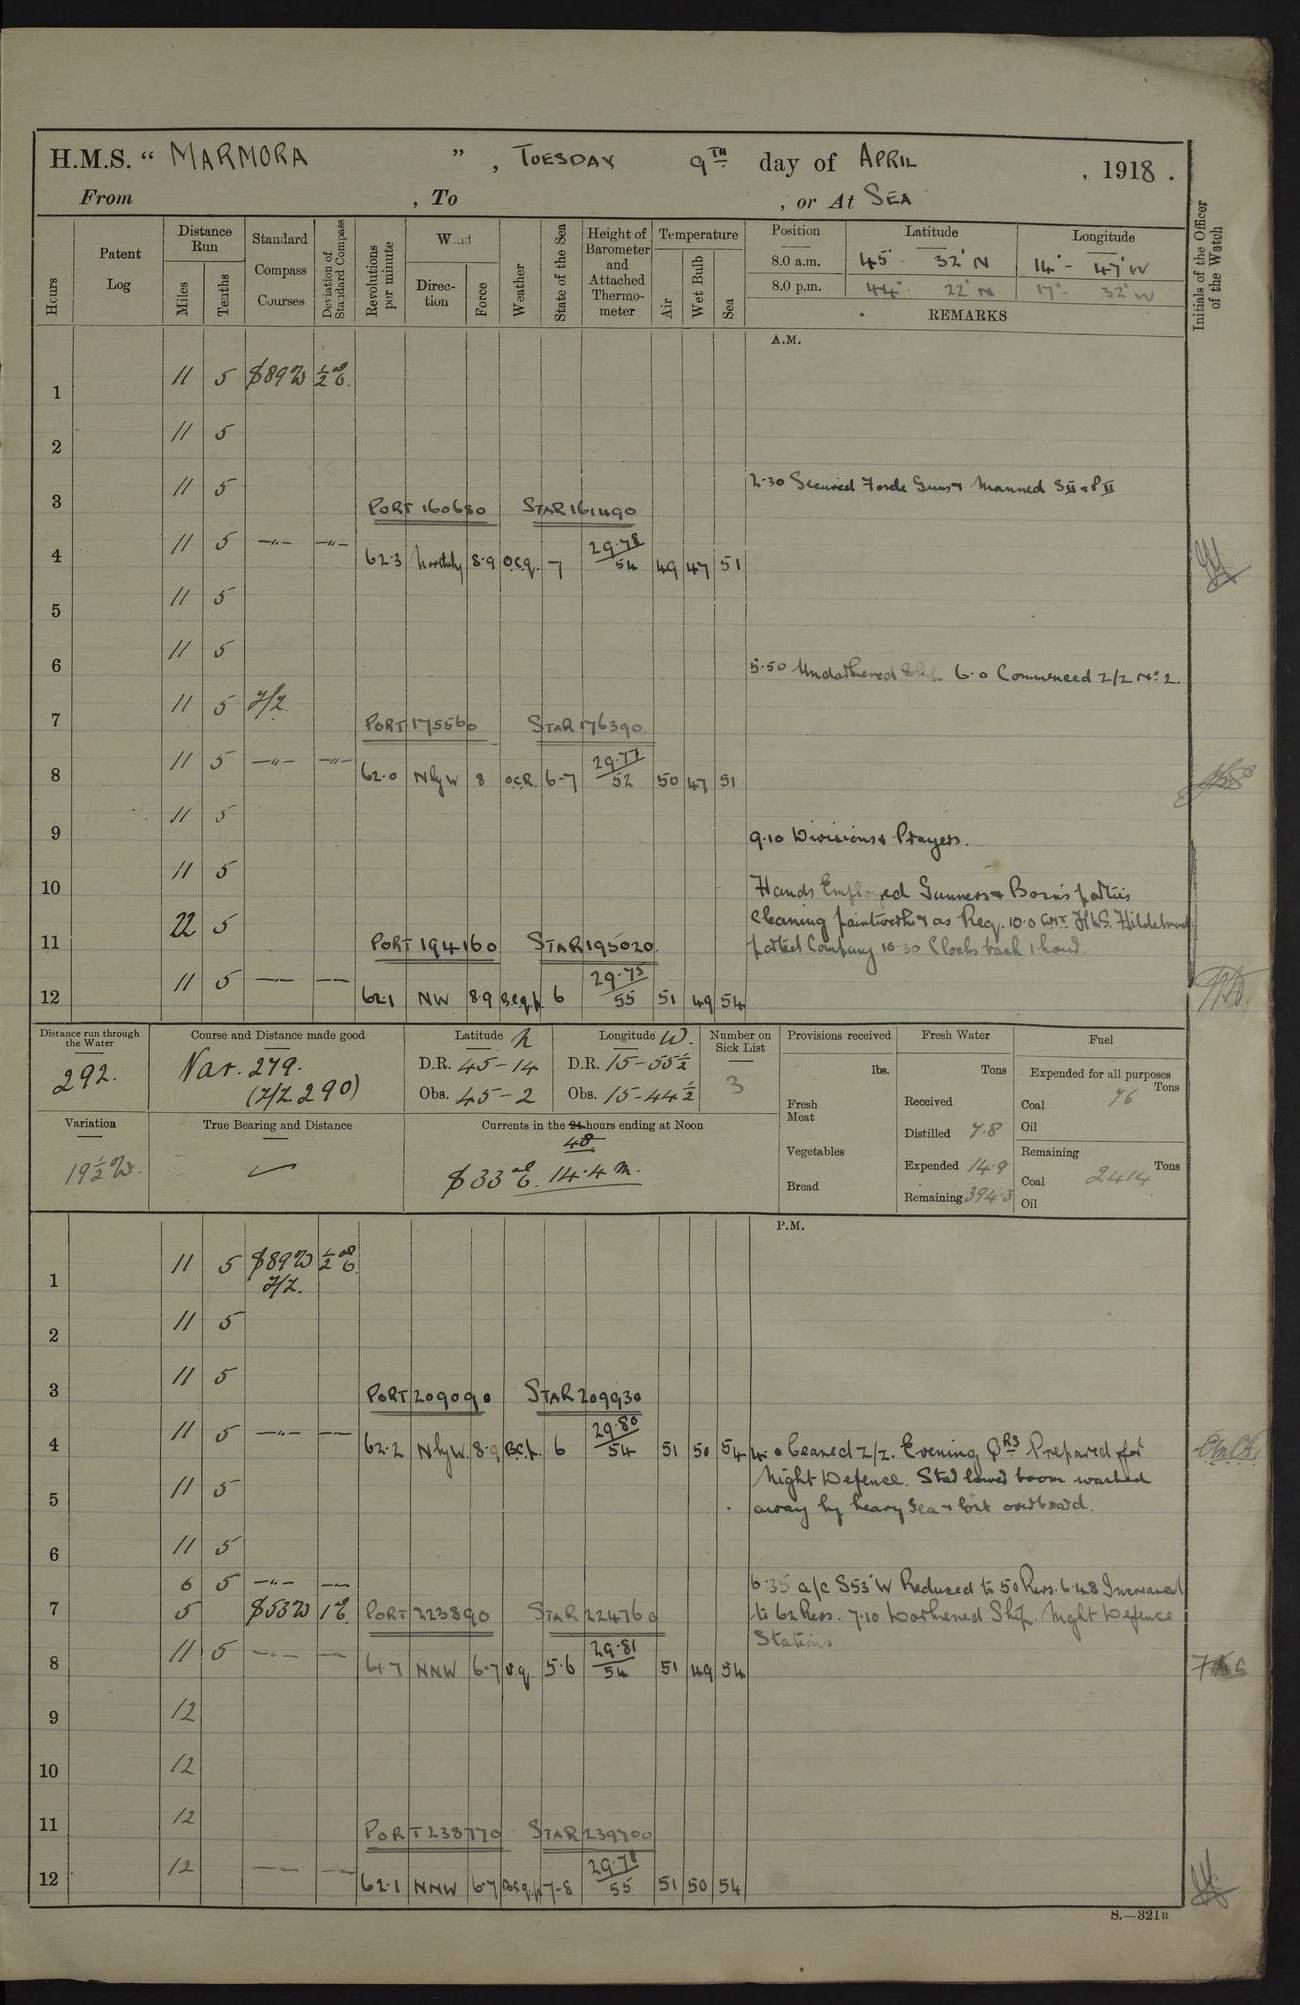 H.M.S. “ MARMORA ” , TUESDAY 9TH day of APRIL , 1918 .
From , To , or At SEA
Hours
Patent Log
Distance Run
Miles
Tenths
Standard Compass Courses
Deviation of Standard Compass
Revolutions per minute
Wind
Direction
Force
Weather
State of the Sea
Height of Barometer and Attached Thermometer
Temperature
Air
Wet Bulb
Sea
Position Latitude Longitude
8.0 a.m. 45° 32' N 14° - 47' W
8.0 p.m. 44° 22' N 17° - 32' W
REMARKS
Initials of the Officer of the Watch
A.M.
1 11 5 S89W ½°E.
2 11 5
3 11 5
2·30 Secured Forde Guns & Manned SII & PII
PORT 160680 STAR 161490
4 11 5 —"— —"— 62·3 Northly 8·9 o.c.q. 7 29·78/54 49 47 51
5 11 5
6 11 5
5·50 Undarkened Ship 6·0 Commenced Z/Z No 2.
7 11 5 Z/Z.
PORT 175560 STAR 176390
8 11 5 —"— —"— 62·0 NlyW 8 O.C.R. 6-7 29·77/52 50 47 51
9 11 5
9·10 Divisions & Prayers.
10 11 5
Hands Employed Gunners & Bosn's parties
cleaning paintwork & as Req. 10·0 GMT. H.M.S. Hildebrand
parted Company 10·30 Clocks back 1 hour.
11 22 5
PORT 194160 STAR 195020
12 11 5 — — 62·1 NW 8·9 6 29·75/55 51 49 54
Distance run through the Water
292.
Course and Distance made good
Nav. 279.
(Z/Z 290)
Latitude N
D.R. 45-14
Obs. 45-2
Longitude W.
D.R. 15-55½
Obs. 15-44½
Number on Sick List
3
Provisions received
lbs.
Fresh Meat
Vegetables
Bread
Fresh Water
Tons
Received
Distilled 7·8
Expended 14·9
Remaining 394·3
Fuel
Expended for all purposes
Tons
Coal 76
Oil
Remaining
Tons
Coal 2414
Oil
Variation
19½W.
True Bearing and Distance
Currents in the 24 hours ending at Noon
48
S33°E. 14·4 m.
P.M.
1 11 5 S89W ½°E.
Z/Z.
2 11 5
3 11 5
PORT 209090 STAR 209930
4 11 5 —"— —"— 62·2 NlyW. 8·9 B.C.p. 6 29·80/54 51 50 54
4·0 Ceased Z/Z. Evening QRS Prepared for
Night Defence. Stbd lower boom washed
away by heavy sea & lost overboard.
5 11 5
6 11 5
6 5 —"— —"—
6·35 a/c S53°W Reduced to 50 Revs. 6·48 Increased
to 62 Revs. 7·10 Darkened Ship. Night Defence
Stations
7 5 S53W 1°E.
PORT 223890 STAR 224760
8 11 5 —"— — 61·7 NNW 6·7 5·6 29·81/54 51 49 54
9 12
10 12
11 12
PORT 238770 STAR 239700
12 12 — — 62·1 NNW 6·7 7-8 29·78/55 51 50 54
S.—321B